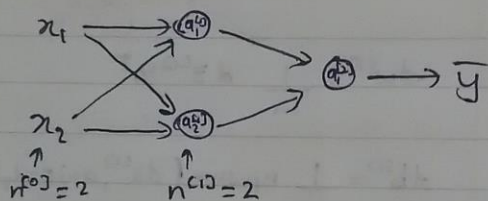 x₁ a₁^[1]
a₁^[2] y̅
x₂ a₂^[1]
n^[0] = 2 n^[1] = 2